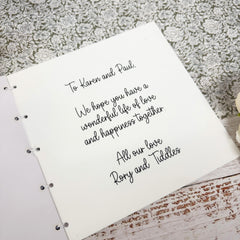 To Karen and Paul.
We hope you have a
wonderful life of love
and happiness together
All our love
Rory and Tiddles